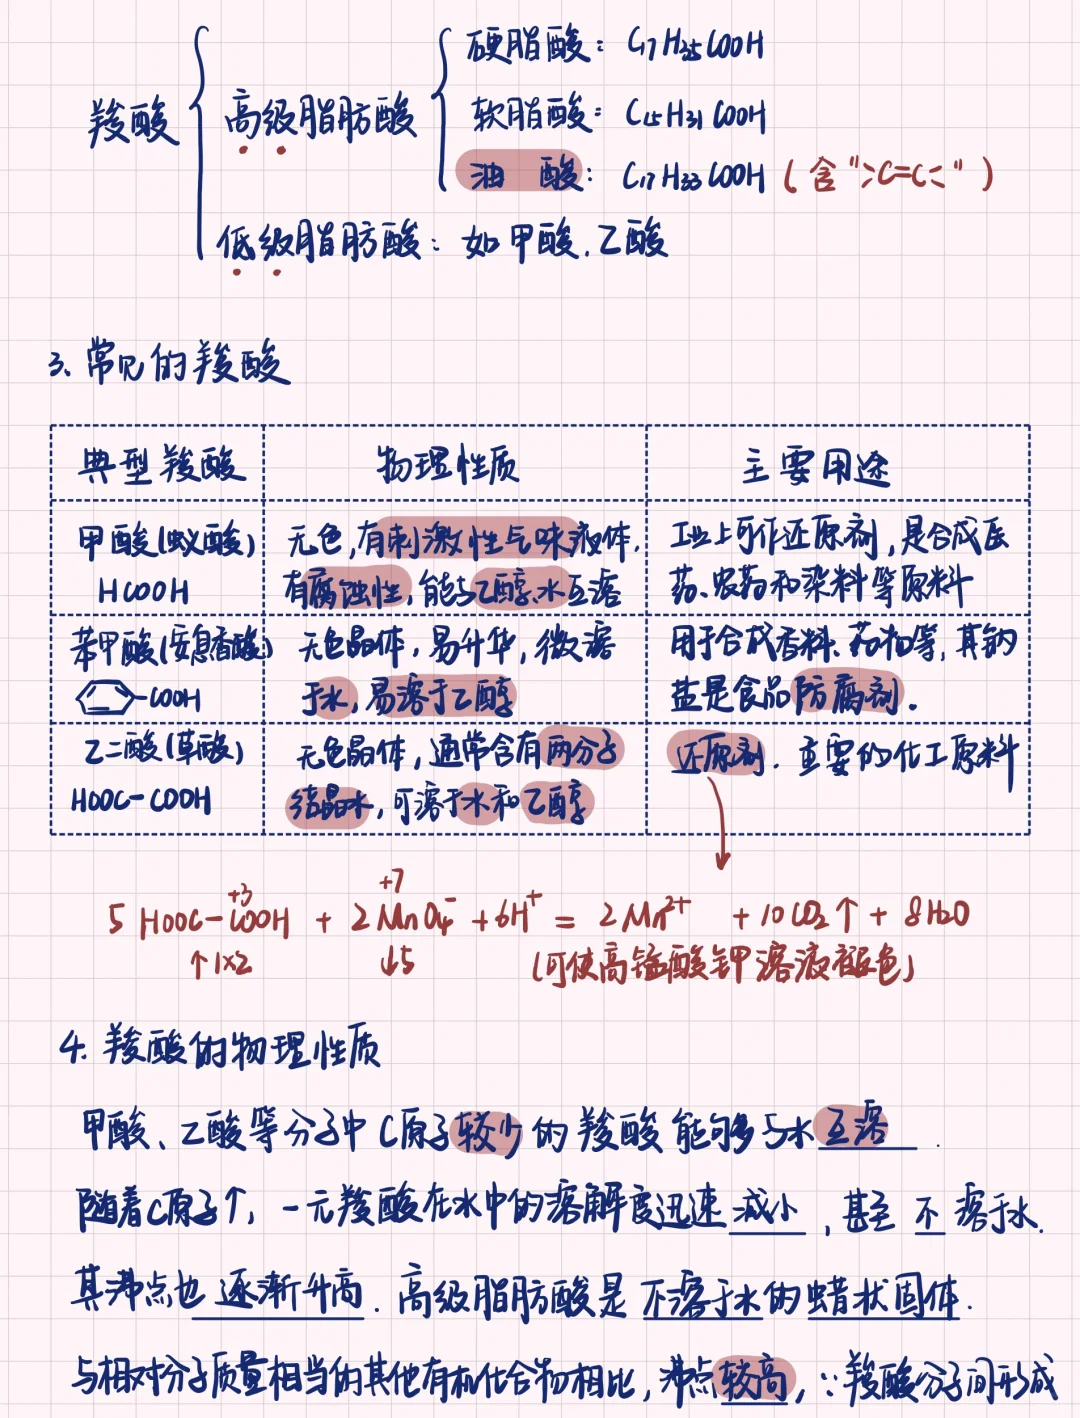 硬脂酸: C17H35COOH
羧酸 高级脂肪酸 软脂酸: C15H31COOH
油 酸: C17H33COOH (含">C=C<")
低级脂肪酸: 如甲酸、乙酸
3、常见的羧酸
典型羧酸 物理性质 主要用途
甲酸(蚁酸) 无色,有刺激性气味液体, 工业上可作还原剂,是合成医
HCOOH 有腐蚀性,能与乙醇、水互溶 药、农药和染料等原料
苯甲酸(安息香酸) 无色晶体,易升华,微溶 用于合成香料、药物等,其钠
-COOH 于水,易溶于乙醇 盐是食品防腐剂.
乙二酸(草酸) 无色晶体,通常含有两分子 还原剂.重要的化工原料
HOOC-COOH 结晶水,可溶于水和乙醇
+3 +7
5 HOOC-COOH + 2MnO4⁻ + 6H⁺ = 2Mn²⁺ + 10CO2↑ + 8H2O
↑1×2 ↓5 (可使高锰酸钾溶液褪色)
4. 羧酸的物理性质
甲酸、乙酸等分子中C原子较少的羧酸能够与水互溶.
随着C原子↑,一元羧酸在水中的溶解度迅速减小,甚至不溶于水.
其沸点也逐渐升高.高级脂肪酸是不溶于水的蜡状固体.
与相对分子质量相当的其他有机化合物相比,沸点较高,∵羧酸分子间形成